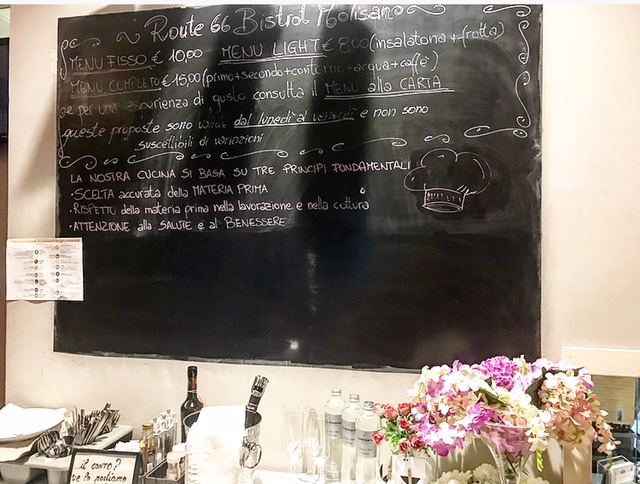 Route 66 Bistrot Molisano
MENU FISSO € 10,00 MENU LIGHT € 8,00 (insalatona + frutta)
MENU COMPLETO € 15,00 (primo+secondo+contorno+acqua+caffè)
e per una esperienza di gusto consulta il MENU alla CARTA
queste proposte sono valide dal lunedì al venerdì e non sono
suscettibili di variazioni
LA NOSTRA CUCINA SI BASA SU TRE PRINCIPI FONDAMENTALI
• SCELTA accurata della MATERIA PRIMA
• RISPETTO della materia prima nella lavorazione e nella cottura
• ATTENZIONE alla SALUTE e al BENESSERE
il conto?
ve lo portiamo